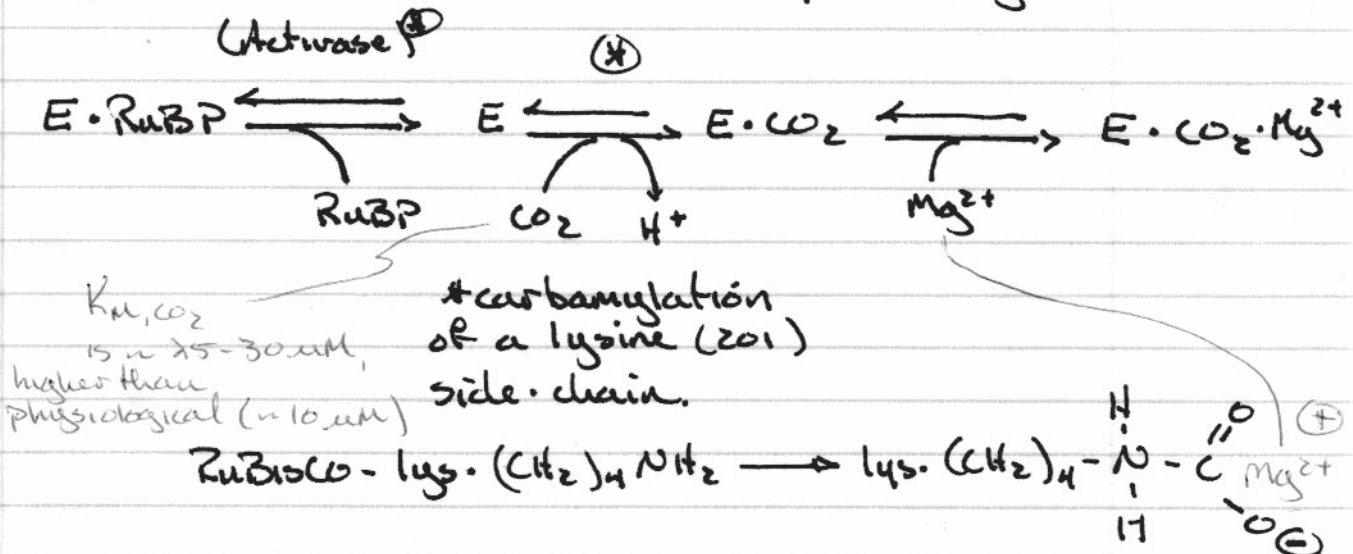 (Activase) ⊛ ⊛
E · RuBP ⇌ E ⇌ E · CO₂ ⇌ E · CO₂ · Mg²⁺
RuBP CO₂ H⁺ Mg²⁺
K_M,CO₂
is ~ 25-30 uM,
higher than
physiological (~10 uM)
*carbamylation
of a lysine (201)
side-chain.
H O ⊕
RuBisCO - lys · (CH₂)₄ NH₂ → lys · (CH₂)₄ - N - C Mg²⁺
H O ⊖